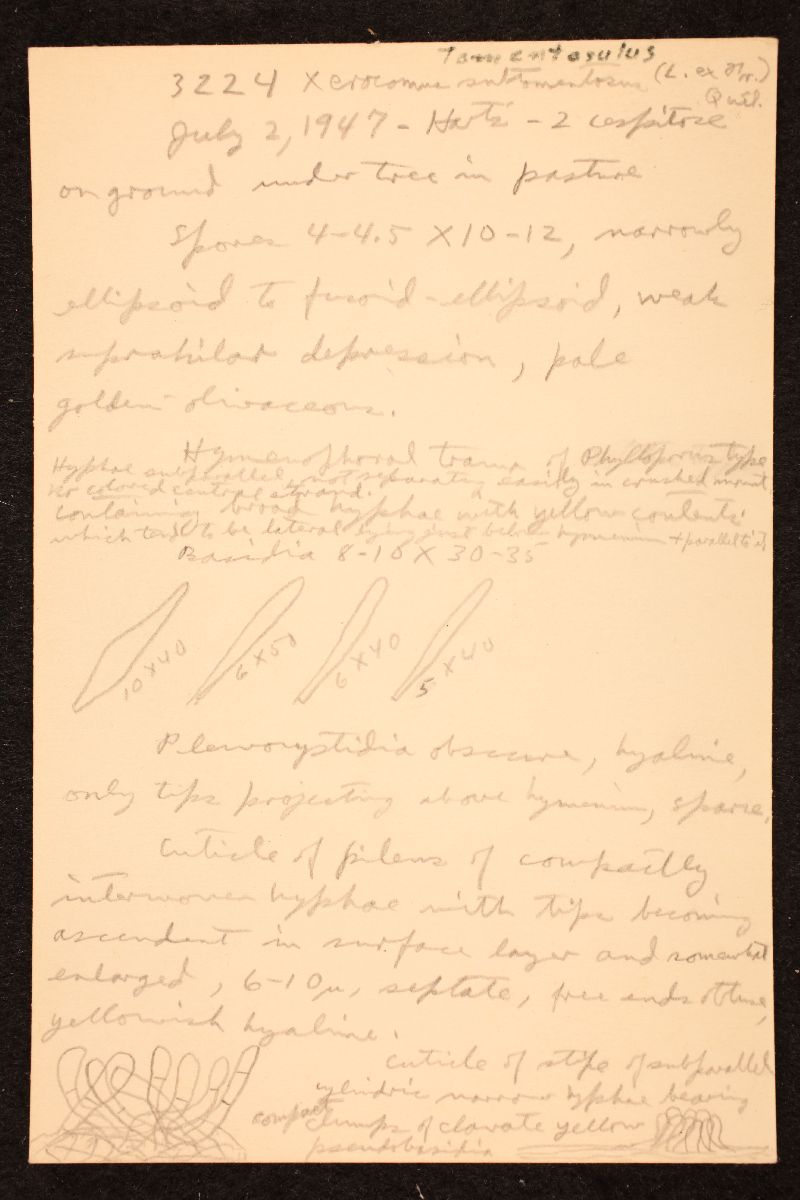 Tomentosulus
3224 Xerocomus subtomentosus (L. ex Fr.)
Quél.
July 2, 1947 - - 2 cespitose
on ground under tree in pasture
Spores 4-4.5 X 10-12, narrowly
ellipsoid to fusoid-ellipsoid, weak
suprahilar depression, pale
golden-olivaceous.
Hymenophoral trama of Phylloporus type
Hyphae subparallel, not separating easily in crushed mount
no colored central strand.
containing broad hyphae with yellow contents
which tend to be lateral lying just below hymenium + parallel to it
Basidia 8-10 X 30-35
10 X 40
6 X 50
6 X 40
5 X 40
Pleurocystidia obscure, hyaline,
only tips projecting above hymenium, sparse.
Cuticle of pileus of compactly
interwoven hyphae with tips becoming
ascendent in surface layer and somewhat
enlarged, 6-10µ, septate, free ends obtuse,
yellowish hyaline.
Cuticle of stipe of subparallel
cylindric narrow hyphae bearing
compact clumps of clavate yellow
pseudobasidia